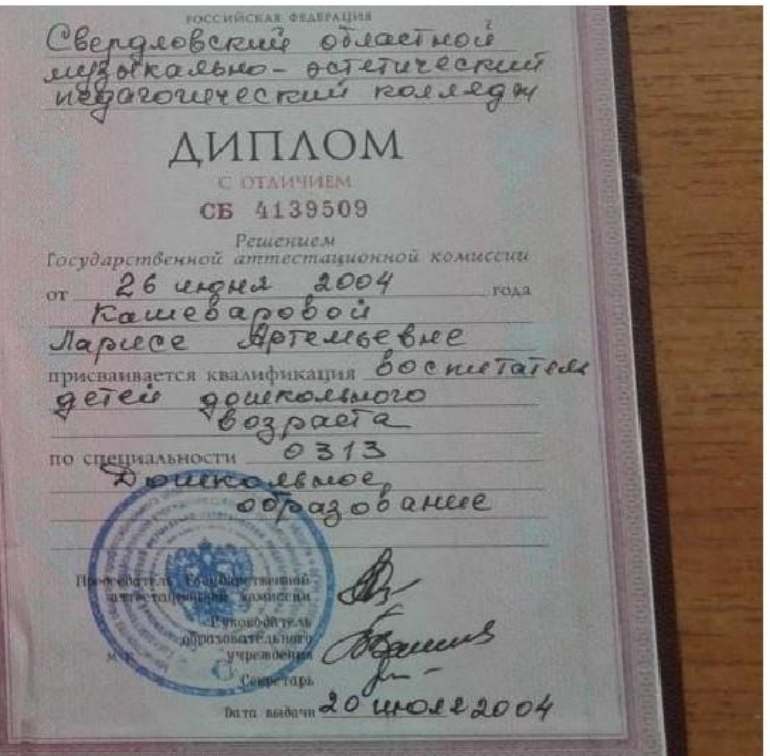 РОССИЙСКАЯ ФЕДЕРАЦИЯ
Свердловский областной
музыкально-эстетический
педагогический колледж
ДИПЛОМ
С ОТЛИЧИЕМ
СБ 4139509
Решением
Государственной аттестационной комиссии
от 26 июня 2004 года
Кашеваровой
Ларисе Артемьевне
присваивается квалификация воспитатель
детей дошкольного
возраста
по специальности 0313
Дошкольное
образование
Председатель Государственной
аттестационной комиссии
Руководитель
образовательного
учреждения
М.П.
Секретарь
Дата выдачи 20 июля 2004